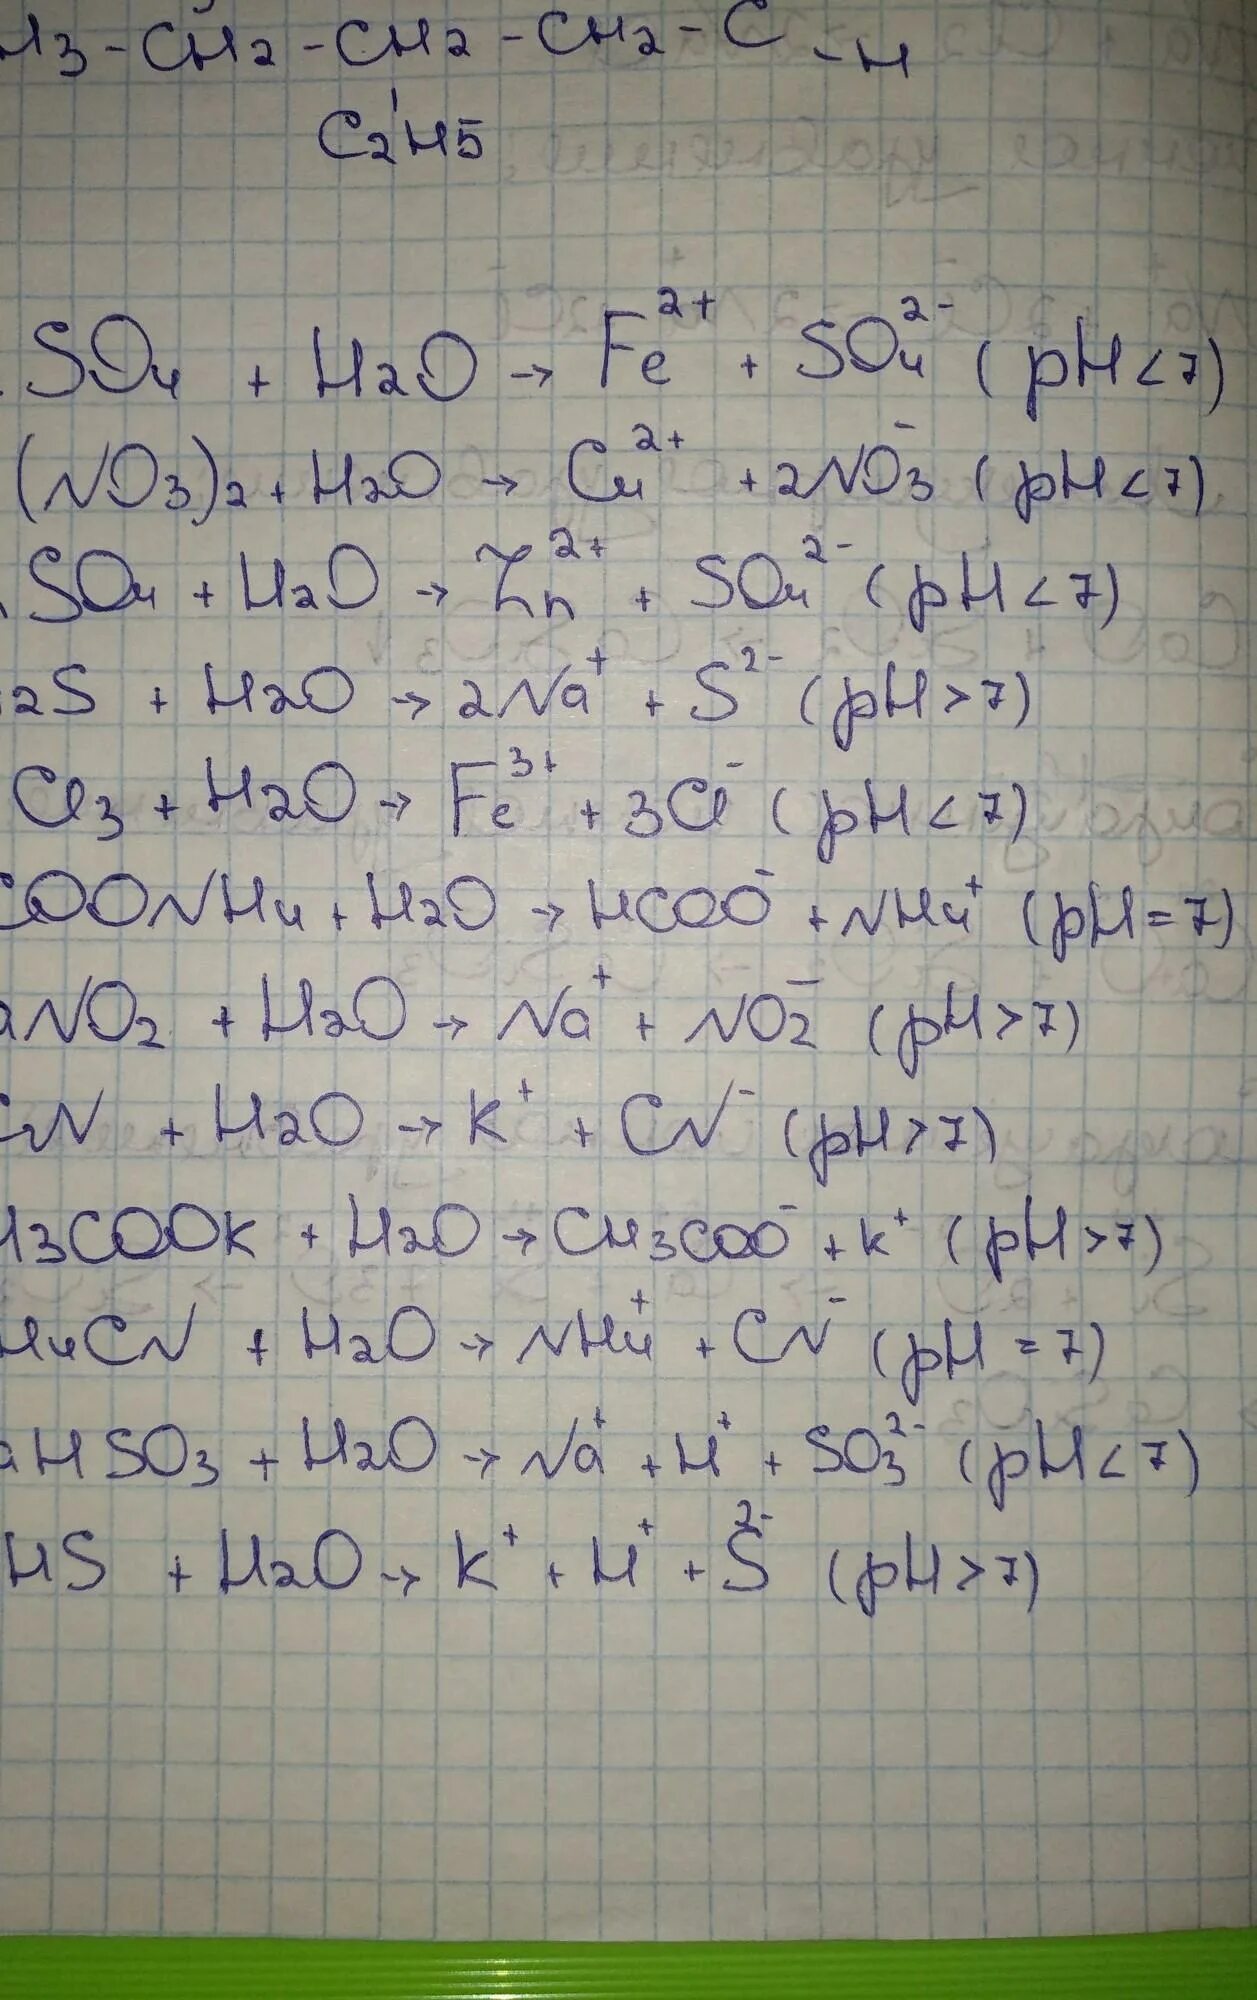 H3-CH2-CH2-CH2-C-H
C2H5
SO4 + H2O → Fe2+ + SO4 2- (pH<7)
(NO3)2 + H2O → Cu2+ + 2NO3- (pH<7)
SO4 + H2O → Zn2+ + SO4 2- (pH<7)
2S + H2O → 2Na+ + S2- (pH>7)
Cl3 + H2O → Fe3+ + 3Cl- (pH<7)
COONH4 + H2O → HCOO- + NH4+ (pH=7)
aNO2 + H2O → Na+ + NO2- (pH>7)
CN + H2O → K+ + CN- (pH>7)
H3COOK + H2O → CH3COO- + K+ (pH>7)
H4CN + H2O → NH4+ + CN- (pH=7)
aHSO3 + H2O → Na+ + H+ + SO3 2- (pH<7)
HS + H2O → K+ + H+ + S2- (pH>7)